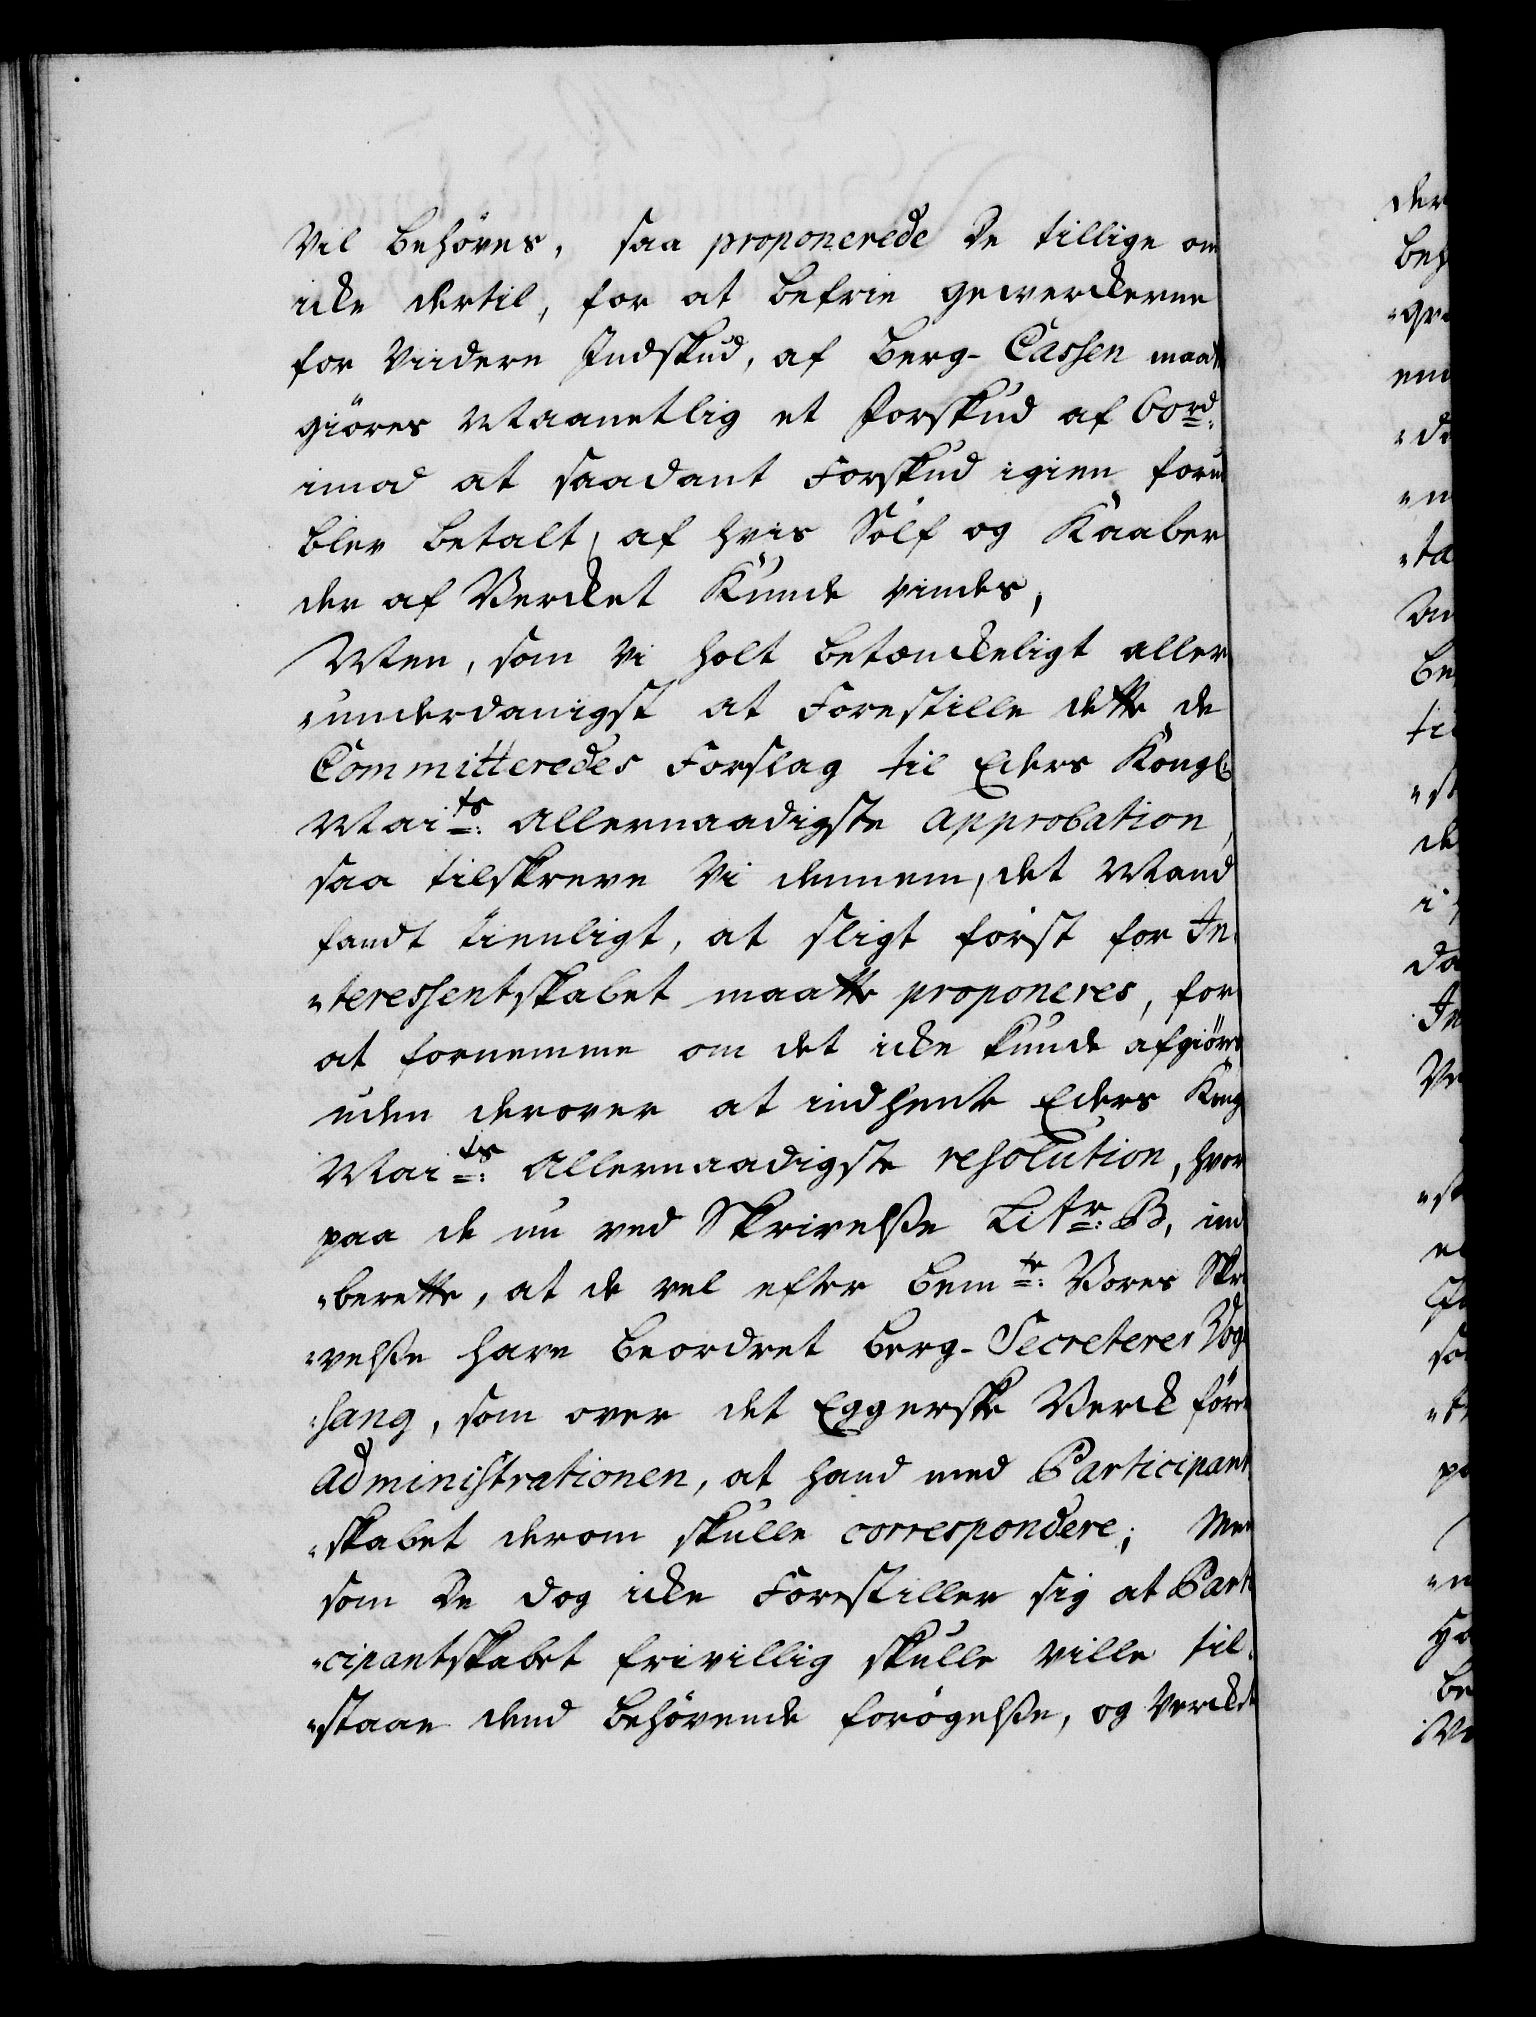 Vil behöves, saa proponerede De tillige om
icke dertil, for at befrie gewerckerne
for Viidere Indskud, af Berg-Cassen maatte
giöres Maanetlig et Forskud af 60 rd:
imod at saadant Forskud igien forud
blev betalt, af hvis Sölf og Kaaber
der af Vercket Kunde vindes,
Men, som Vi holt betænckeligt aller
"underdanigst at Forestille dette de
Committeredes Forslag til Eders Kongl:
Maits: Allernaadigste Approbation,
saa tilskreve Vi dennem, det Mand
fandt tienligt, at sligt först for In
"teressentskabet maatte proponeres, for
at fornemme om det icke kunde afgiöres
uden derover at indhente Eders Kong
Maits: Allernaadigste resolution, hvor
paa de nu ved Skrivelsse Litr: B, ind
"berette, at de vel efter bemte: Vores Skri
"velsse have beordret Berg-Secreterer Vog
"hang, som over det Eggerske Verck förer
Administrationen, at hand med Participant
"skabet derom skulle correspondere; Men
som De dog icke Forestiller sig at Parti
"cipantskabet frivillig skulle ville til
"staae dend behövende forögelsse, og Verckets